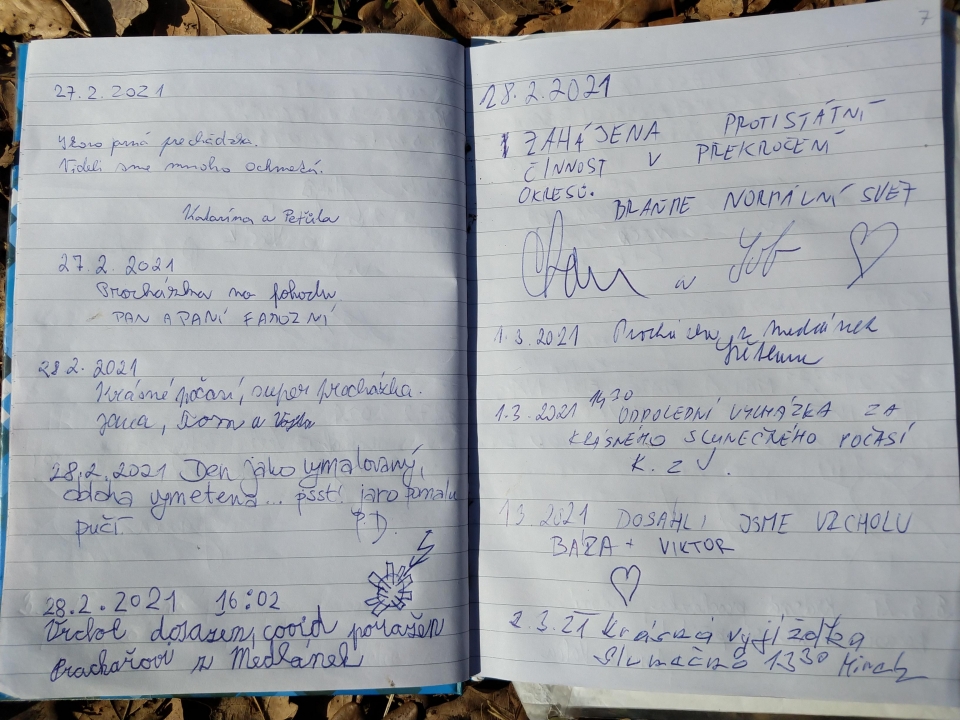 27.2.2021
prvná prechádzka.
Videli sme mnoho
Katarína a
27.2.2021
Procházka na pohodu
PAN A PANÍ FAMOZNÍ
28.2.2021
Krásné počasí, super procházka.
Jana, Tom a
28.2.2021 Den jako vymalovaný,
obloha vymetena... pssst! jaro pomalu
pučí. P.D.
28.2.2021 16:02
Vrchol dosažen, covid poražen
Prachařovi z Medlánek
7
28.2.2021
ZAHÁJENA PROTISTÁTNÍ
ČINNOST V PŘEKROČENÍ
OKRESŮ.
BRAŇME NORMÁLNÍ SVĚT
a
1.3.2021 Procházka z Medlánek
1.3.2021 14,30 ODPOLEDNÍ VYCHÁZKA ZA
KRÁSNÉHO SLUNEČNÉHO POČASÍ
K. z J.
1.3.2021 DOSÁHLI JSME VRCHOLU
BÁRA + VIKTOR
2.3.21 krásná vyjížďka
Slunečno 13 30